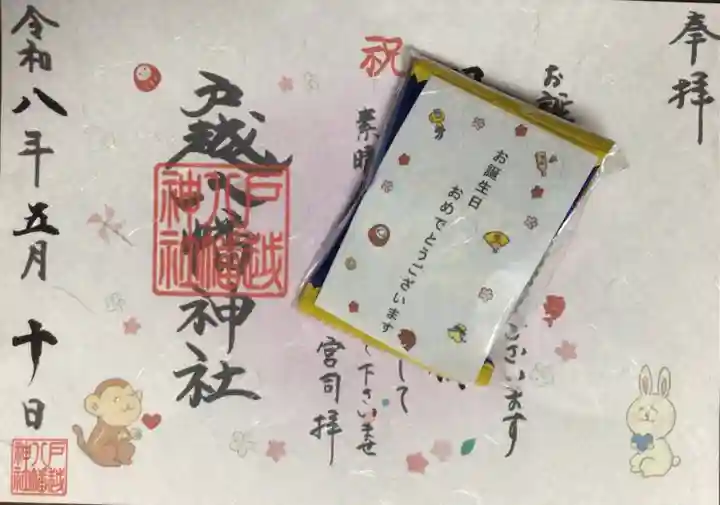 奉拝
お誕
ございます
祝
素晴
して
下さいませ
宮司 拝
お誕生日
おめでとうございます
戸越八幡神社
戸越
八幡
神社
令和八年五月十日
戸越
八幡
神社